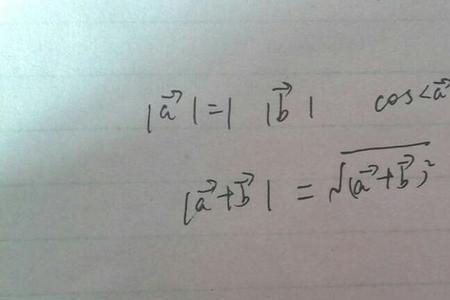 |a⃗| = | |b⃗| cos<a⃗
|a⃗+b⃗| = √(a⃗+b⃗)²